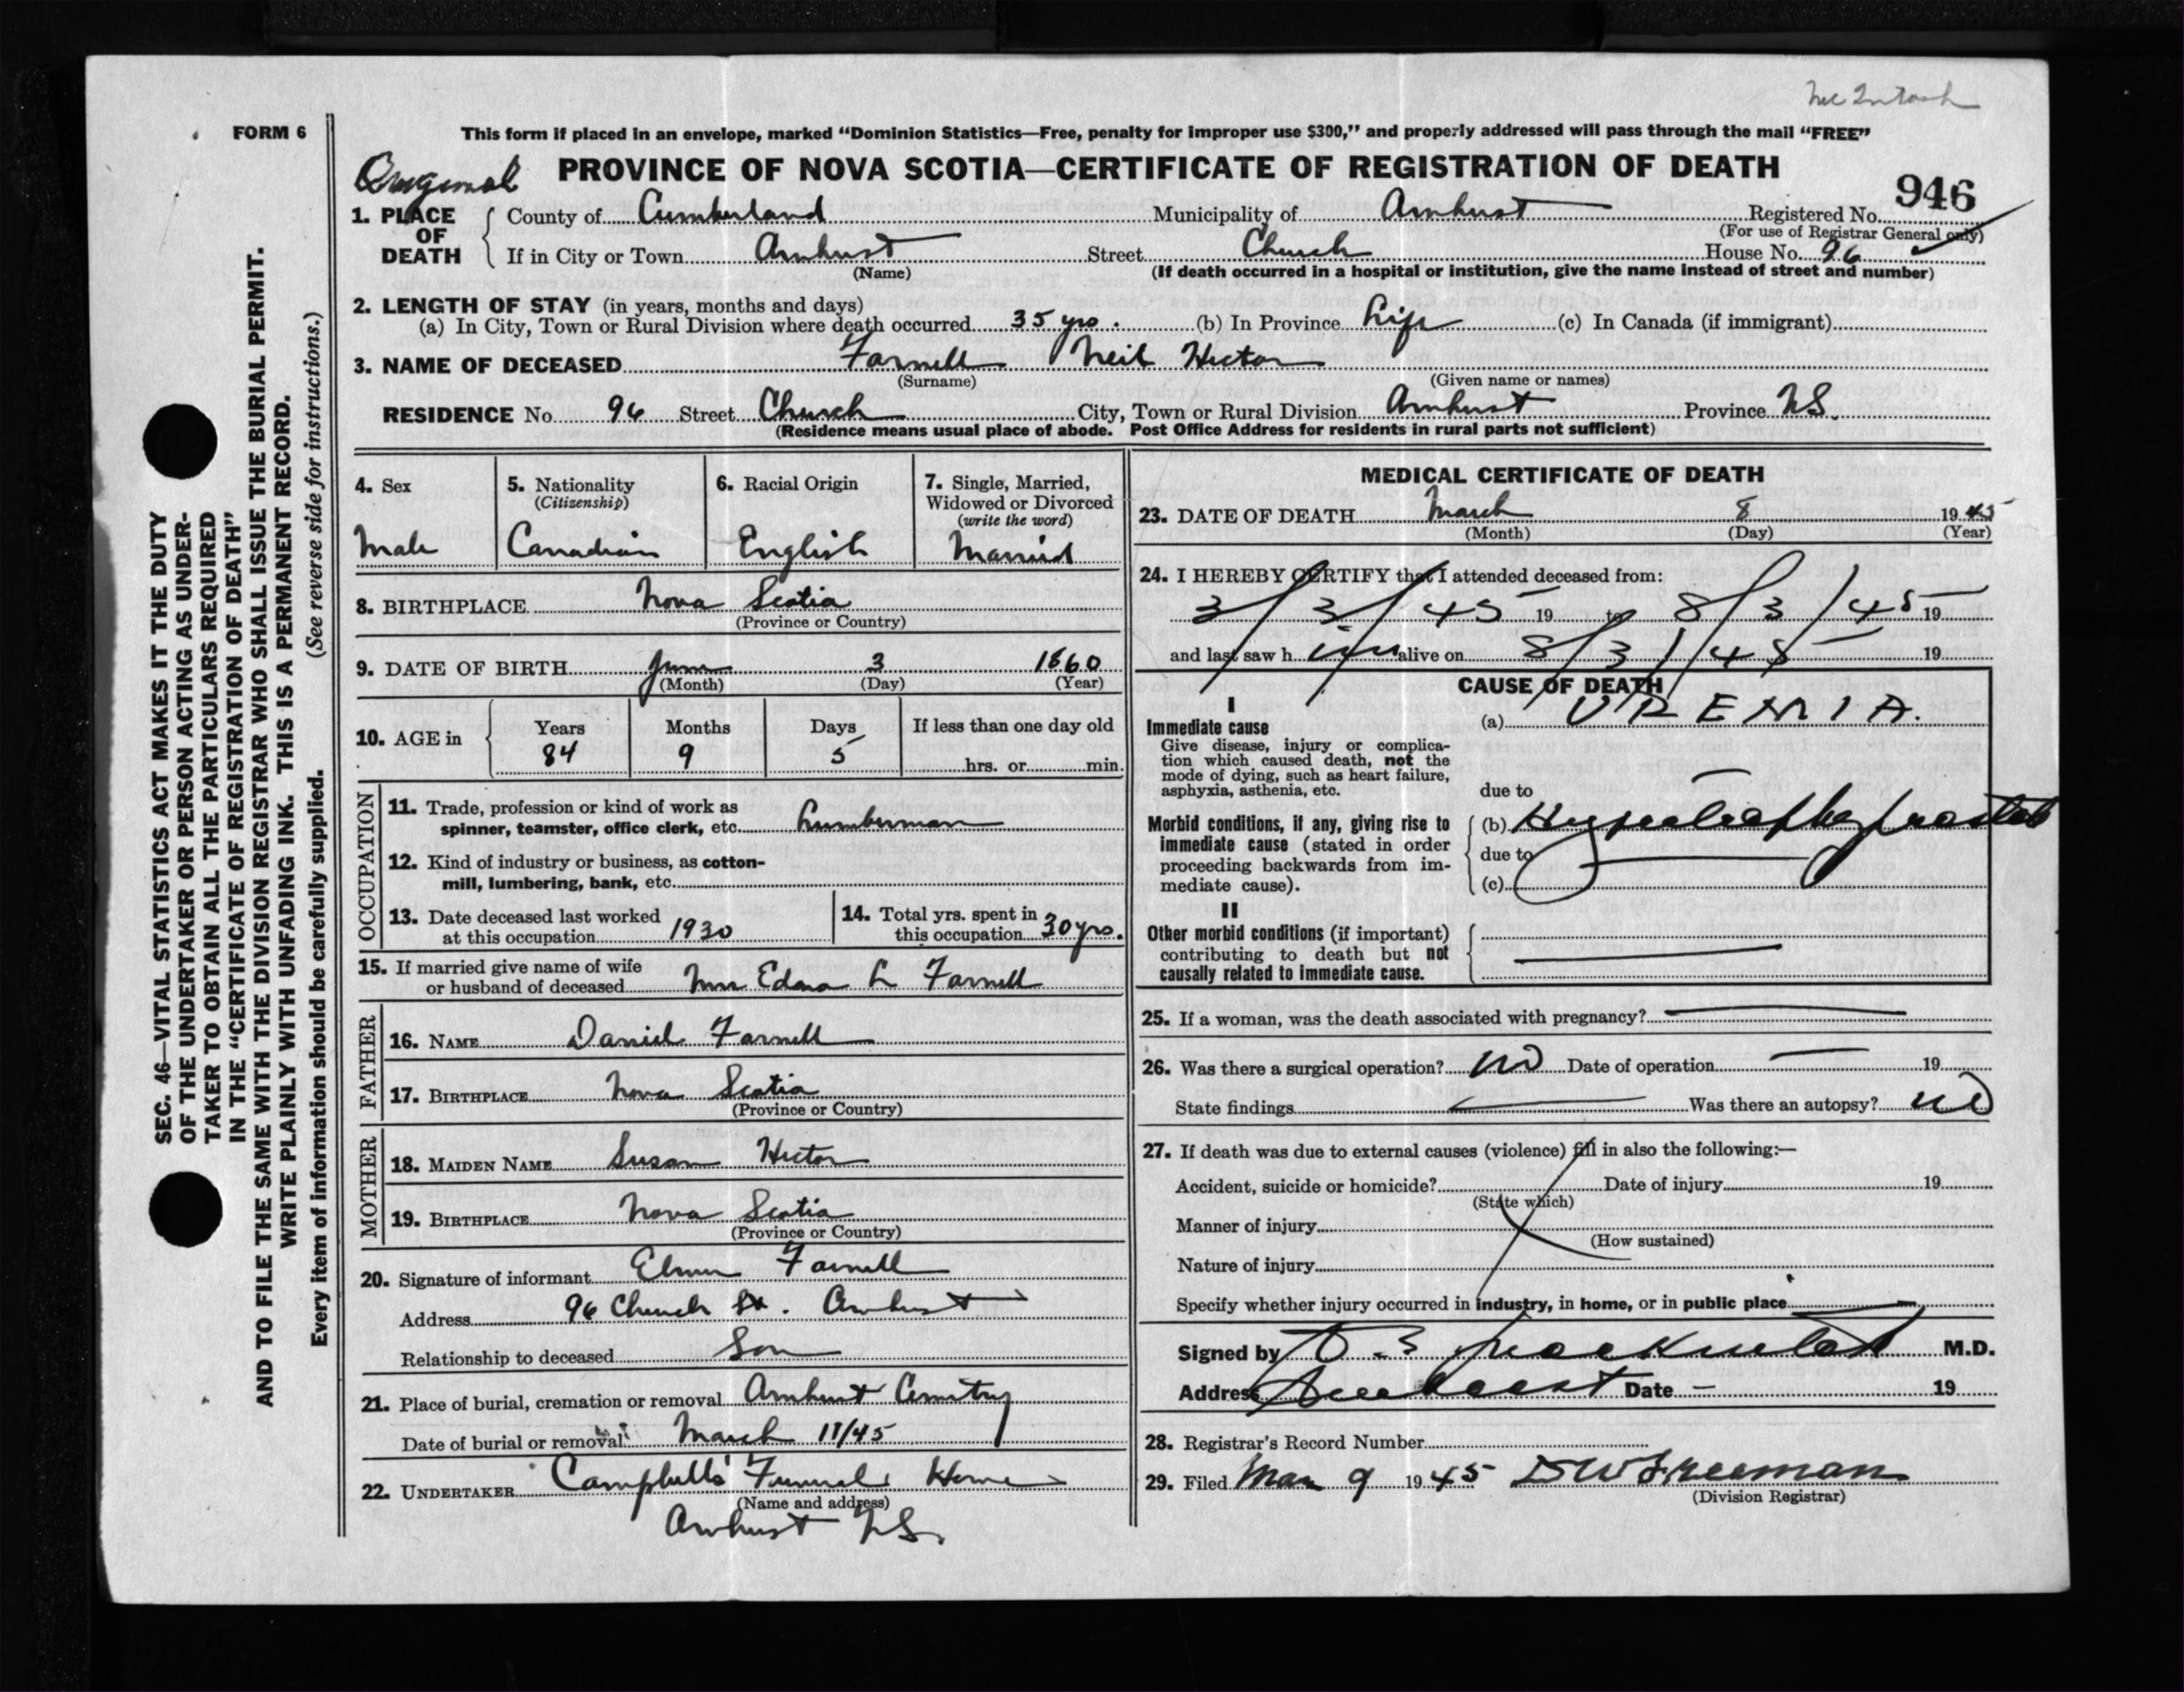 McIntosh
FORM 6
This form if placed in an envelope, marked “Dominion Statistics—Free, penalty for improper use $300,” and properly addressed will pass through the mail “FREE”
Original PROVINCE OF NOVA SCOTIA—CERTIFICATE OF REGISTRATION OF DEATH
946
1. PLACE OF DEATH
County of Cumberland Municipality of Amherst Registered No.
(For use of Registrar General only)
If in City or Town Amherst Street Church House No. 96
(Name) (If death occurred in a hospital or institution, give the name instead of street and number)
2. LENGTH OF STAY (in years, months and days)
(a) In City, Town or Rural Division where death occurred 35 yrs. (b) In Province Life (c) In Canada (if immigrant)
3. NAME OF DECEASED Farnell Neil Hector
(Surname) (Given name or names)
RESIDENCE No. 96 Street Church City, Town or Rural Division Amherst Province N.S.
(Residence means usual place of abode. Post Office Address for residents in rural parts not sufficient)
4. Sex
Male
5. Nationality
(Citizenship)
Canadian
6. Racial Origin
English
7. Single, Married,
Widowed or Divorced
(write the word)
Married
8. BIRTHPLACE Nova Scotia
(Province or Country)
9. DATE OF BIRTH June 3 1860
(Month) (Day) (Year)
10. AGE in
Years Months Days If less than one day old
84 9 5 hrs. or min.
OCCUPATION
11. Trade, profession or kind of work as
spinner, teamster, office clerk, etc. Lumberman
12. Kind of industry or business, as cotton-
mill, lumbering, bank, etc.
13. Date deceased last worked
at this occupation 1930
14. Total yrs. spent in
this occupation 30 yrs.
15. If married give name of wife
or husband of deceased Mrs Edna L Farnell
FATHER
16. NAME Daniel Farnell
17. BIRTHPLACE Nova Scotia
(Province or Country)
MOTHER
18. MAIDEN NAME Susan Hector
19. BIRTHPLACE Nova Scotia
(Province or Country)
20. Signature of informant Elmer Farnell
Address 96 Church St. Amherst
Relationship to deceased Son
21. Place of burial, cremation or removal Amherst Cemetry
Date of burial or removal March 11/45
22. UNDERTAKER Campbells' Funeral Home
(Name and address)
Amherst N.S.
MEDICAL CERTIFICATE OF DEATH
23. DATE OF DEATH March 8 1945
(Month) (Day) (Year)
24. I HEREBY CERTIFY that I attended deceased from:
3/3/45 19 to 8/3/45 19
and last saw h im alive on 8/3/45 19
CAUSE OF DEATH
I
Immediate cause
Give disease, injury or complica-
tion which caused death, not the
mode of dying, such as heart failure,
asphyxia, asthenia, etc.
(a) UREMIA.
due to
Morbid conditions, if any, giving rise to
immediate cause (stated in order
proceeding backwards from im-
mediate cause).
(b) Hypertrophy prostate
due to
(c)
II
Other morbid conditions (if important)
contributing to death but not
causally related to immediate cause.
25. If a woman, was the death associated with pregnancy?
26. Was there a surgical operation? no Date of operation 19
State findings Was there an autopsy? no
27. If death was due to external causes (violence) fill in also the following:—
Accident, suicide or homicide? Date of injury 19
(State which)
Manner of injury
(How sustained)
Nature of injury
Specify whether injury occurred in industry, in home, or in public place
Signed by M.D.
Address Amherst Date – 19
28. Registrar's Record Number
29. Filed Mar 9 1945 DW Freeman
(Division Registrar)
SEC. 46—VITAL STATISTICS ACT MAKES IT THE DUTY
OF THE UNDERTAKER OR PERSON ACTING AS UNDER-
TAKER TO OBTAIN ALL THE PARTICULARS REQUIRED
IN THE “CERTIFICATE OF REGISTRATION OF DEATH”
AND TO FILE THE SAME WITH THE DIVISION REGISTRAR WHO SHALL ISSUE THE BURIAL PERMIT.
WRITE PLAINLY WITH UNFADING INK. THIS IS A PERMANENT RECORD.
Every item of information should be carefully supplied. (See reverse side for instructions.)